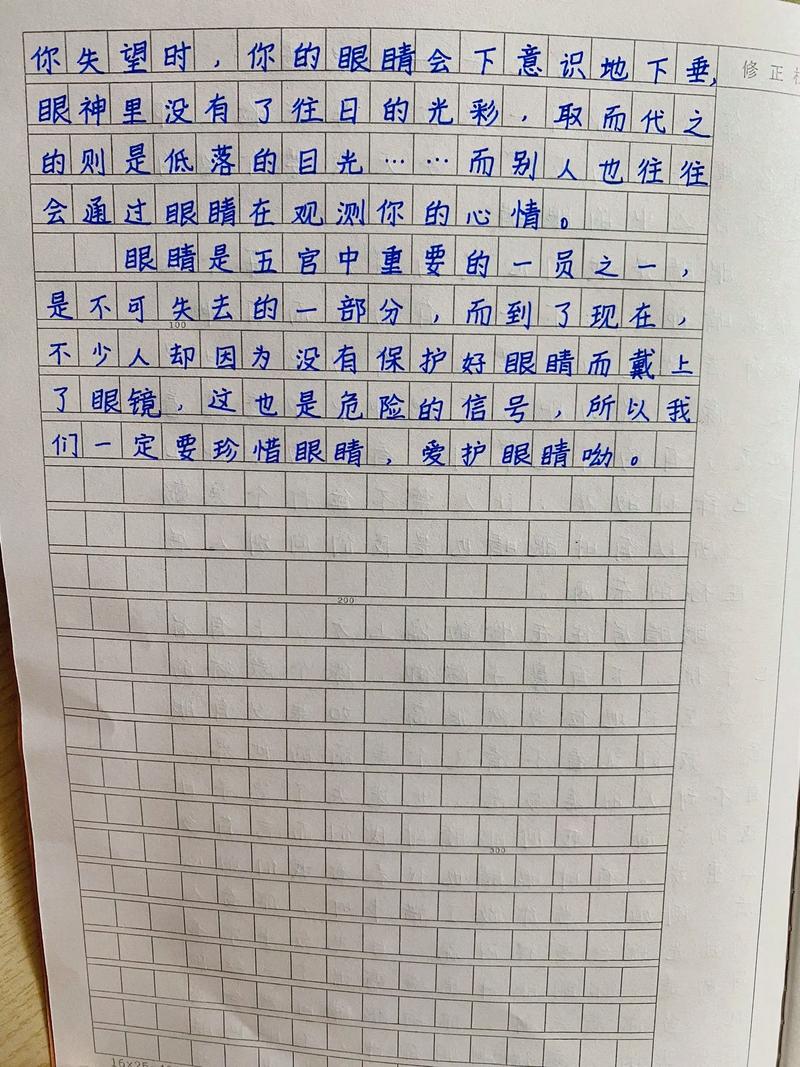 你失望时，你的眼睛会下意识地下垂，
修正栏
眼神里没有了往日的光彩，取而代之
的则是低落的目光……而别人也往往
会通过眼睛在观测你的心情。
眼睛是五官中重要的一员之一，
是不可失去的一部分，而到了现在，
100
不少人却因为没有保护好眼睛而戴上
了眼镜，这也是危险的信号，所以我
们一定要珍惜眼睛，爱护眼睛呦。
200
300